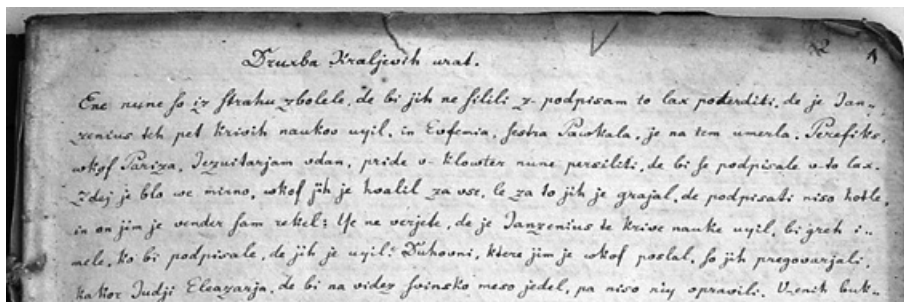 Druxba Kraljevih urat.
Ene nune so iz strahu zbolele, de bi jih ne silili z- podpisam to lax poterditi, de je Jan-
zenius teh pet krivih naukov uyil, in Evfemia, sestra Paskala, je na tem umerla. Perefiks,
wkof Pariza, Jezuitarjam vdan, pride v- klowter nune persiliti, de bi se podpisale v-to lax.
Zdej je blo we mirno, wkof jih je hvalil za vse, le za to jih je grajal, de podpisati niso hotle,
in on jim je vender sam rekel: Ye ne verjete, de je Janzenius te krive nauke uyil, bi greh i-
mele, ko bi podpisale, de jih je uyil. Duhovni, ktere jim je wkof poslal, so jih pregovarjali,
kakor Judji Eleazarja, de bi na videz svinsko meso jedel, pa niso niy opravili. V-enih buk-